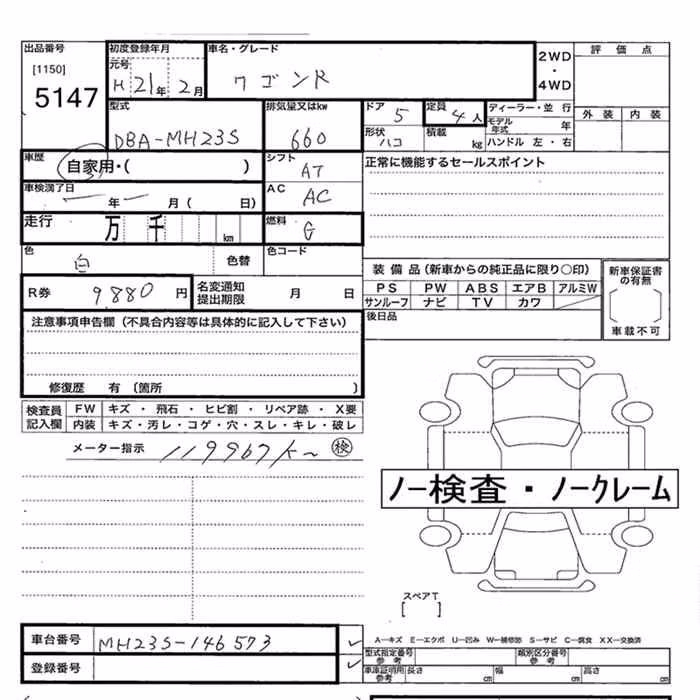 出品番号 [1150] 5147
初度登録年月 元号 H 21年 2月
車名・グレード ワゴンR
2WD・4WD
評価点
外装 内装
型式 DBA-MH23S
排気量又はkw 660
ドア 5
形状 ハコ
定員 4人
積載 kg
ディーラー・並行
モデル年式 年
ハンドル 左・右
車歴 自家用・( )
シフト AT
正常に機能するセールスポイント
車検満了日 年 月( 日)
AC AC
走行 万 千 km
燃料 G
色 白 色替
色コード
R券 9,880円
名変通知提出期限 月 日
装備品(新車からの純正品に限り○印)
PS PW ABS エアB アルミW
サンルーフ ナビ TV カワ
後日品
新車保証書の有無
車載不可
注意事項申告欄(不具合内容等は具体的に記入して下さい)
修復歴 有(箇所 )
検査員記入欄
FW キズ・飛石・ヒビ割・リペア跡・X要
内装 キズ・汚レ・コゲ・穴・スレ・キレ・破レ
メーター指示 119967km 検
ノー検査・ノークレーム
スペアT
[ ]
車台番号 MH23S-146573
登録番号
A―キズ E―エクボ U―凹み W―補修跡 S―サビ C―腐食 XX―交換済
型式指定番号 参考
類別区分番号 参考
車庫証明用 参考 長さ cm 幅 cm 高さ cm